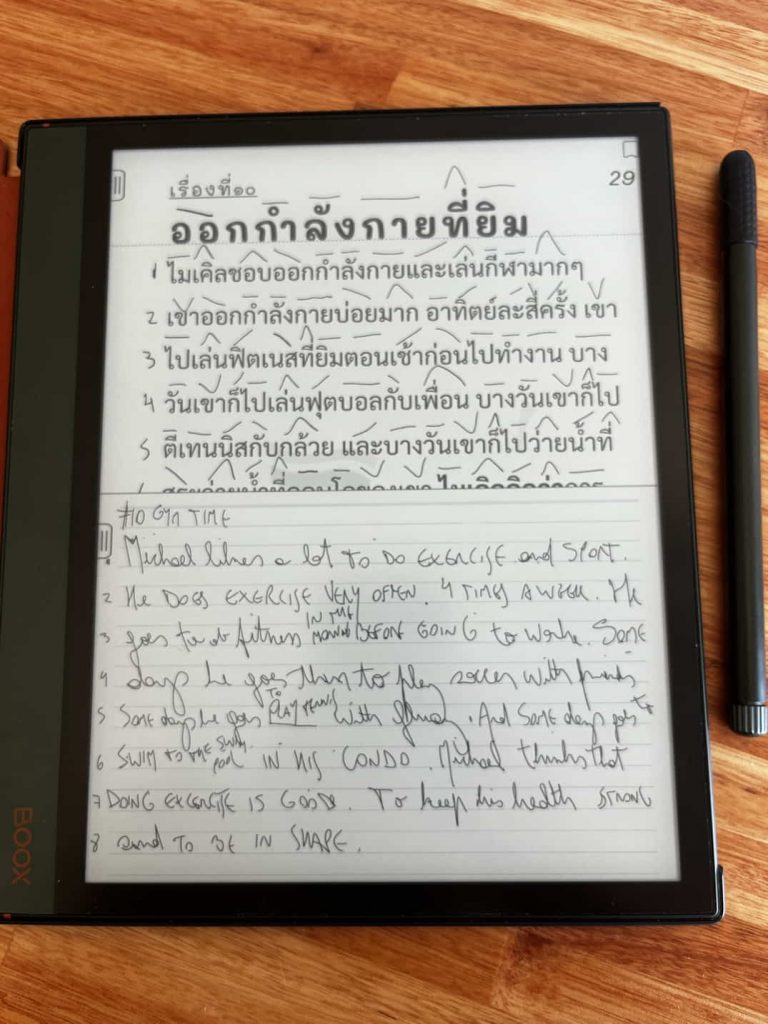 29
เรื่องที่๑๐
ออกกำลังกายที่ยิม
1 ไมเคิลชอบออกกำลังกายและเล่นกีฬามากๆ
2 เขาออกกำลังกายบ่อยมาก อาทิตย์ละสี่ครั้ง เขา
3 ไปเล่นฟิตเนสที่ยิมตอนเช้าก่อนไปทำงาน บาง
4 วันเขาก็ไปเล่นฟุตบอลกับเพื่อน บางวันเขาก็ไป
5 ตีเทนนิสกับกล้วย และบางวันเขาก็ไปว่ายน้ำที่
#10 GYM TIME
Michael likes a lot TO DO EXERCISE and SPORT.
2 He DOES EXERCISE VERY OFTEN. 4 TIMES A WEEK. He
3 goes to do fitness IN THE BEFORE GOING to work. SOME
4 days he goes then to play soccer with friends
5 Some days he goes TO PLAY TENNIS with . And Some days goes to
6 SWIM TO THE SWIM. POOL IN HIS CONDO. Michael thinks that
7 DOING EXERCISE IS GOOD. To keep his health STRONG
8 and TO BE IN SHAPE.
BOOX